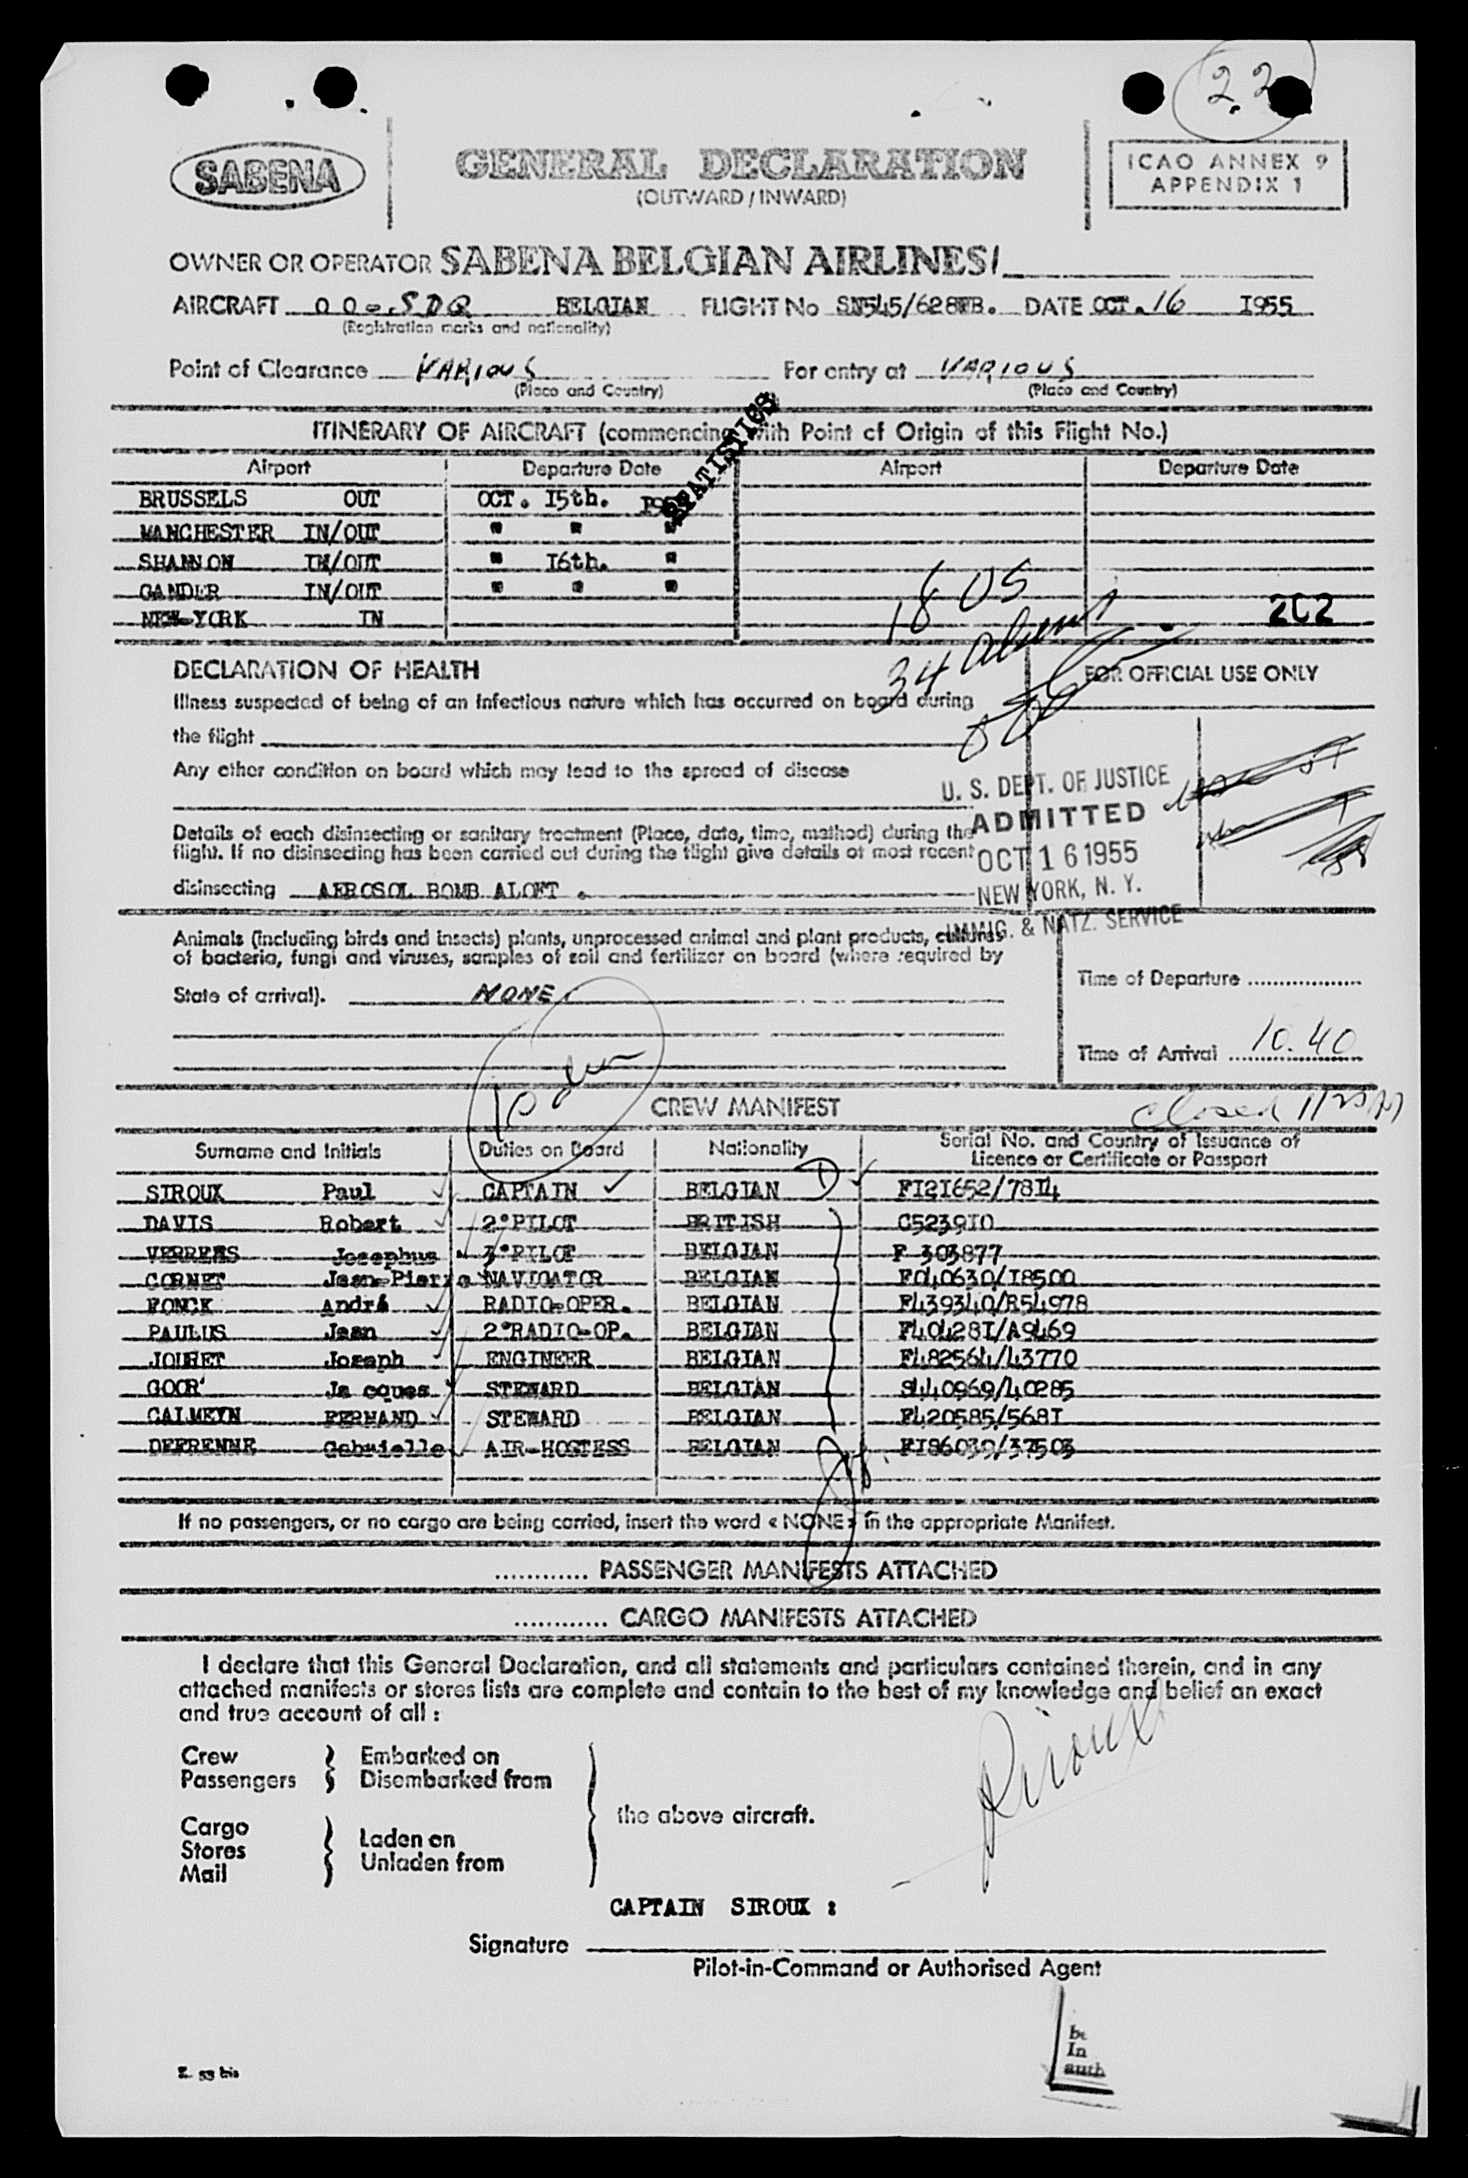 22
SABENA
GENERAL DECLARATION
(OUTWARD / INWARD)
ICAO ANNEX 9
APPENDIX 1
OWNER OR OPERATOR SABENA BELGIAN AIRLINES/
AIRCRAFT OO-SDQ BELGIAN FLIGHT No SN545/628WB. DATE OCT. 16 I955
(Registration marks and nationality)
Point of Clearance VARIOUS For entry at VARIOUS
(Place and Country) (Place and Country)
STATISTICS
ITINERARY OF AIRCRAFT (commencing with Point of Origin of this Flight No.)
Airport Departure Date Airport Departure Date
BRUSSELS OUT OCT. I5th.
MANCHESTER IN/OUT " " "
SHANNON IN/OUT " I6th. "
GANDER IN/OUT " " "
NEW-YORK IN
18 US
34 Aliens
2C2
DECLARATION OF HEALTH
FOR OFFICIAL USE ONLY
Illness suspected of being of an infectious nature which has occurred on board during
the flight
Any other condition on board which may lead to the spread of disease
U. S. DEPT. OF JUSTICE
ADMITTED
OCT 16 1955
NEW YORK, N. Y.
IMMIG. & NATZ. SERVICE
Details of each disinsecting or sanitary treatment (Place, date, time, method) during the
flight. If no disinsecting has been carried out during the flight give details of most recent
disinsecting AEROSOL BOMB ALOFT .
Animals (including birds and insects) plants, unprocessed animal and plant products, cultures
of bacteria, fungi and viruses, samples of soil and fertilizer on board (where required by
State of arrival). NONE
Time of Departure
Time of Arrival 10.40
closed
CREW MANIFEST
Surname and Initials Duties on Board Nationality Serial No. and Country of Issuance of
Licence or Certificate or Passport
SIROUX Paul CAPTAIN BELGIAN FI2I652/78I4
DAVIS Robert 2°PILOT BRITISH C5239I0
VERREES Josephus 3°PILOT BELGIAN F 303877
CORNET Jean-Pierre NAVIGATOR BELGIAN F040630/I8500
FONCK André RADIO-OPER. BELGIAN F439340/R54978
PAULUS Jean 2°RADIO-OP. BELGIAN F40428I/A9469
JOURET Joseph ENGINEER BELGIAN F482564/43770
GOOR Jacques STEWARD BELGIAN S440969/40285
CALMEYN FERNAND STEWARD BELGIAN F420585/568I
DEFRENNE Gabrielle AIR-HOSTESS BELGIAN FI86039/37503
If no passengers, or no cargo are being carried, insert the word « NONE » in the appropriate Manifest.
............ PASSENGER MANIFESTS ATTACHED
............ CARGO MANIFESTS ATTACHED
I declare that this General Declaration, and all statements and particulars contained therein, and in any
attached manifests or stores lists are complete and contain to the best of my knowledge and belief an exact
and true account of all :
Crew Embarked on
Passengers Disembarked from
the above aircraft.
Cargo
Stores Laden on
Mail Unladen from
Siroux
CAPTAIN SIROUX :
Signature
Pilot-in-Command or Authorised Agent
be
In
auth
E. 53 bis